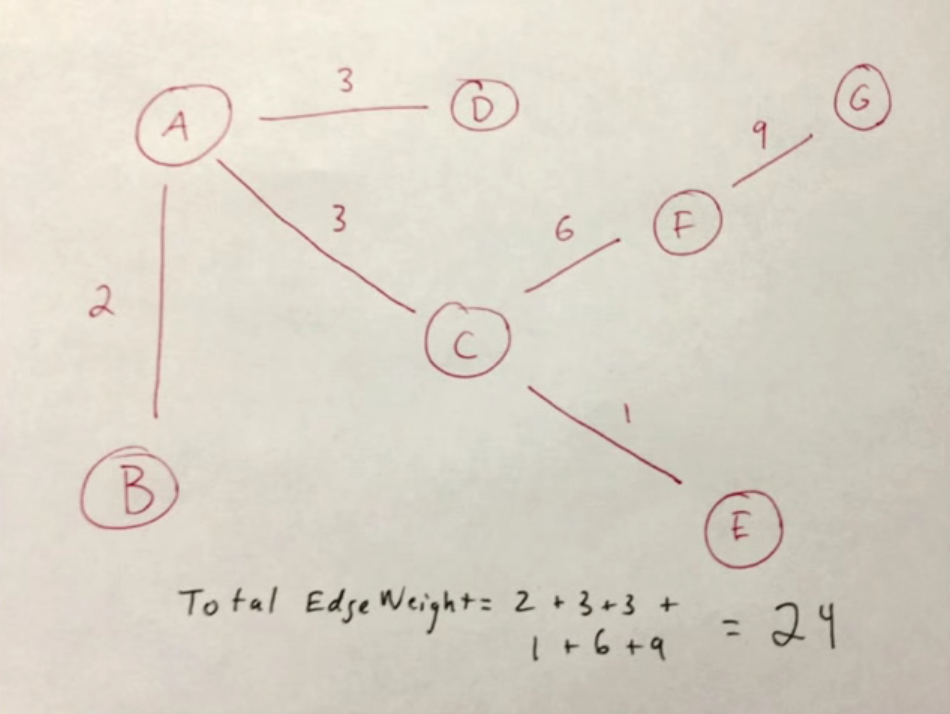 3
A
D
G
9
F
3
6
2
C
1
B
E
Total Edge Weight = 2 + 3 + 3 +
1 + 6 + 9 = 24